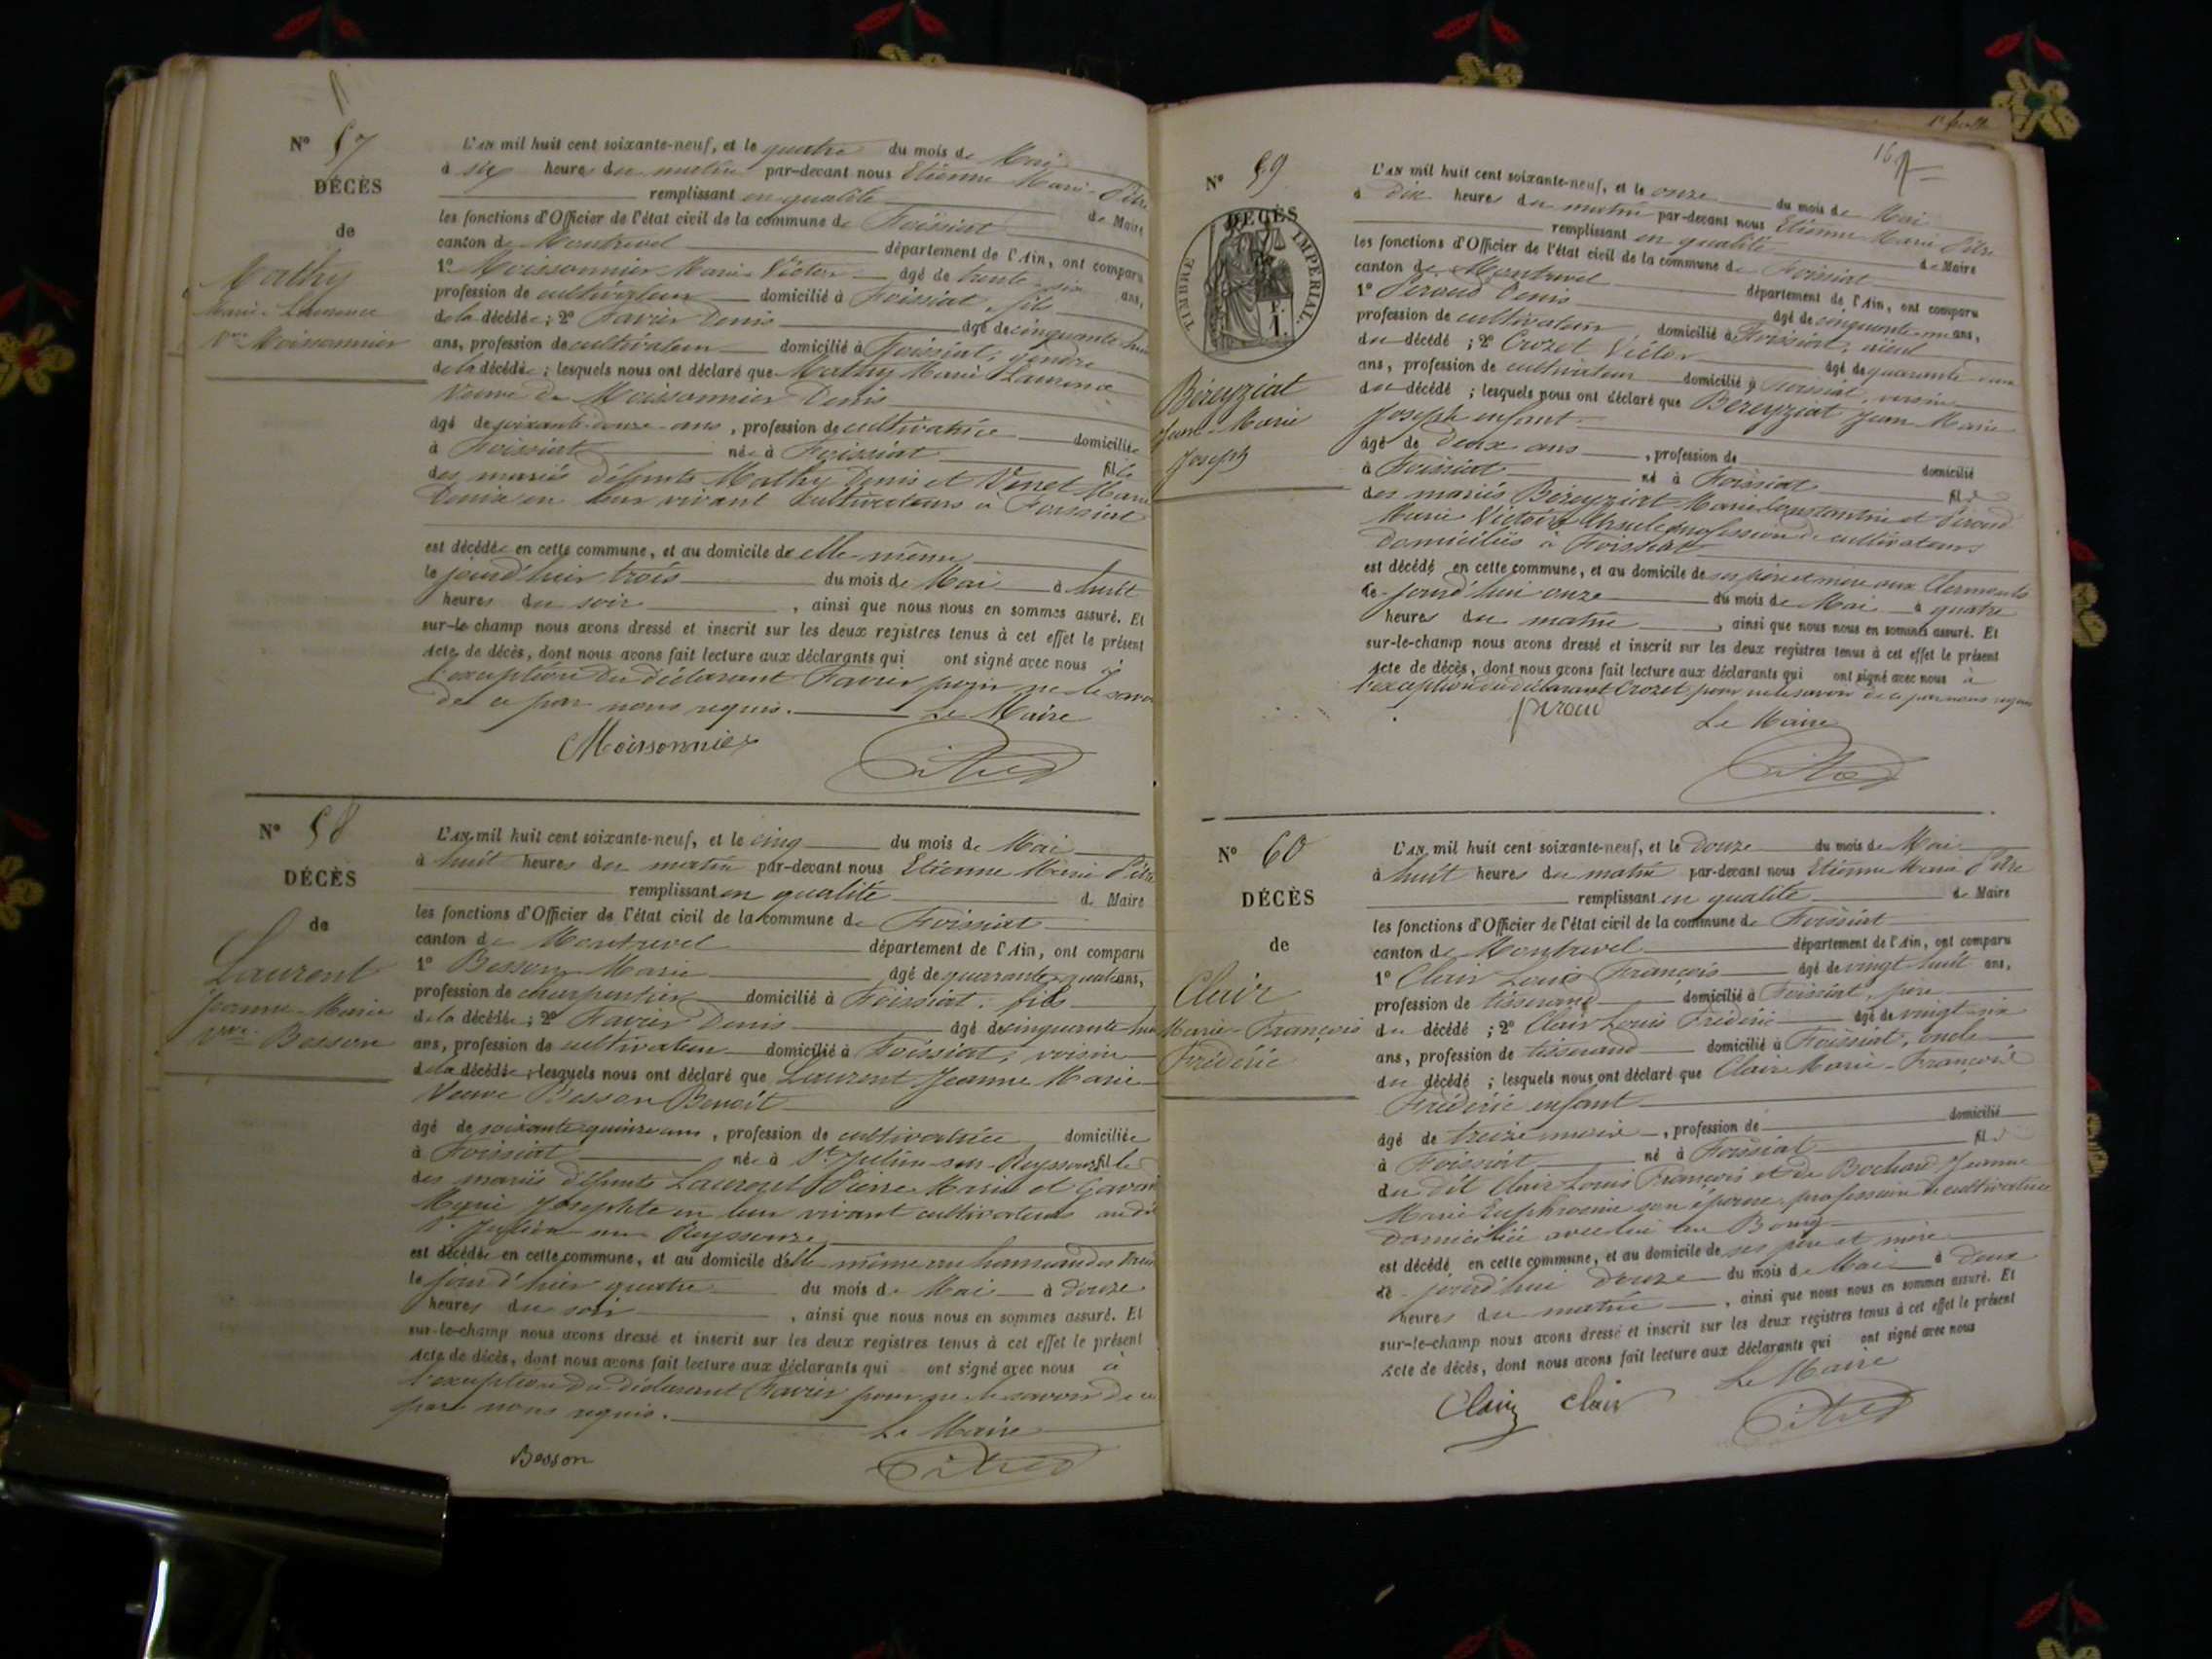 N° 57
DÉCÈS
de
Mathy
Marie Laurence
Vve Moissonnier
L'AN mil huit cent soixante-neuf, et le quatre du mois de Mai
à six heures du matin par-devant nous Etienne Marie Pitre
remplissant en qualité de Maire
les fonctions d'Officier de l'état civil de la commune de Foissiat
canton de Montrevel département de l'Ain, ont comparu
1° Moissonnier Marie Victor âgé de trente six ans,
profession de cultivateur domicilié à Foissiat, fils
de la décédée ; 2° Favier Denis âgé de cinquante huit
ans, profession de cultivateur domicilié à Foissiat, gendre
de la décédée ; lesquels nous ont déclaré que Mathy Marie Laurence
Veuve de Moissonnier Denis
âgé de soixante douze ans, profession de cultivatrice domiciliée
à Foissiat née à Foissiat fille
des mariés défunts Mathy Denis et Venet Marie
Denise en leur vivant cultivateurs à Foissiat
est décédée en cette commune, et au domicile de elle-même
le jour d'hier trois du mois de Mai à huit
heures du soir, ainsi que nous nous en sommes assuré. Et
sur-le-champ nous avons dressé et inscrit sur les deux registres tenus à cet effet le présent
Acte de décès, dont nous avons fait lecture aux déclarants qui ont signé avec nous à
l'exception du déclarant Favier pour ne le savoir
de ce par nous requis. Le Maire
Moissonnier
N° 58
DÉCÈS
de
Laurent
Jeanne-Marie
Vve Besson
L'AN mil huit cent soixante-neuf, et le cinq du mois de Mai
à huit heures du matin par-devant nous Etienne Marie Pitre
remplissant en qualité de Maire
les fonctions d'Officier de l'état civil de la commune de Foissiat
canton de Montrevel département de l'Ain, ont comparu
1° Besson Marie âgé de quarante quatre ans,
profession de charpentier domicilié à Foissiat, fils
de la décédée ; 2° Favier Denis âgé de cinquante huit
ans, profession de cultivateur domicilié à Foissiat, voisin
de la décédée ; lesquels nous ont déclaré que Laurent Jeanne Marie
Veuve Besson Benoît
âgé de soixante quinze ans, profession de cultivatrice domiciliée
à Foissiat née à St Julien-sur-Reyssouze fille
des mariés défunts Laurent Pierre Marie et
Marie Josephte en leur vivant cultivateurs audit
St Julien sur Reyssouze
est décédée en cette commune, et au domicile d'elle même au hameau des
le jour d'hier quatre du mois de Mai à douze
heures du soir, ainsi que nous nous en sommes assuré. Et
sur-le-champ nous avons dressé et inscrit sur les deux registres tenus à cet effet le présent
Acte de décès, dont nous avons fait lecture aux déclarants qui ont signé avec nous à
l'exception du déclarant Favier pour ne le savoir de ce
par nous requis.
Le Maire
Besson
N° 59
DÉCÈS
TIMBRE IMPERIAL
Béreyziat
Jean-Marie
Joseph
L'AN mil huit cent soixante-neuf, et le onze du mois de Mai
à dix heures du matin par-devant nous Etienne Marie Pitre
remplissant en qualité de Maire
les fonctions d'Officier de l'état civil de la commune de Foissiat
canton de Montrevel département de l'Ain, ont comparu
1° Péraud Denis âgé de cinquante-un ans,
profession de cultivateur domicilié à Foissiat, aïeul
du décédé ; 2° Crozet Victor âgé de quarante
ans, profession de cultivateur domicilié à Foissiat, voisin
du décédé ; lesquels nous ont déclaré que Béreyziat Jean Marie
Joseph enfant
âgé de deux ans, profession de domicilié
à Foissiat né à Foissiat fils
des mariés Béreyziat Marie Constantin et Péraud
Marie Victoire Ursule profession de cultivateurs
domiciliés à Foissiat
est décédé en cette commune, et au domicile de ses père et mère aux Clermonts
le jourd'hui onze du mois de Mai à quatre
heures du matin, ainsi que nous nous en sommes assuré. Et
sur-le-champ nous avons dressé et inscrit sur les deux registres tenus à cet effet le présent
Acte de décès, dont nous avons fait lecture aux déclarants qui ont signé avec nous à
l'exception du déclarant Crozet pour ne le savoir de ce par nous requis
Péraud
Le Maire
N° 60
DÉCÈS
de
Clair
Marie-François
Frédéric
L'AN mil huit cent soixante-neuf, et le douze du mois de Mai
à huit heures du matin par-devant nous Etienne Marie Pitre
remplissant en qualité de Maire
les fonctions d'Officier de l'état civil de la commune de Foissiat
canton de Montrevel département de l'Ain, ont comparu
1° Clair Louis François âgé de vingt huit ans,
profession de tisserand domicilié à Foissiat, père
du décédé ; 2° Clair Louis Frédéric âgé de vingt-six
ans, profession de tisserand domicilié à Foissiat, oncle
du décédé ; lesquels nous ont déclaré que Clair Marie-François
Frédéric enfant
âgé de treize mois, profession de domicilié
à Foissiat né à Foissiat fils
du dit Clair Louis François et de Bochard Jeanne
Marie Euphrosine son épouse, profession de cultivatrice
domiciliée avec lui au Bourg
est décédé en cette commune, et au domicile de ses père et mère
le jourd'hui douze du mois de Mai à deux
heures du matin, ainsi que nous nous en sommes assuré. Et
sur-le-champ nous avons dressé et inscrit sur les deux registres tenus à cet effet le présent
Acte de décès, dont nous avons fait lecture aux déclarants qui ont signé avec nous
Le Maire
Clair Clair